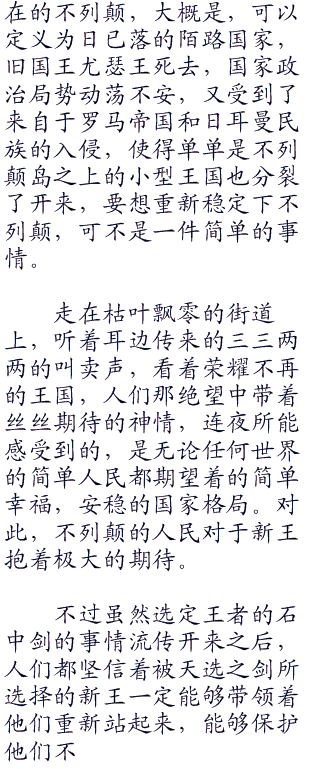 在的不列颠，大概是，可以
定义为日已落的陌路国家，
旧国王尤瑟王死去，国家政
治局势动荡不安，又受到了
来自于罗马帝国和日耳曼民
族的入侵，使得单单是不列
颠岛之上的小型王国也分裂
了开来，要想重新稳定下不
列颠，可不是一件简单的事
情。
走在枯叶飘零的街道
上，听着耳边传来的三三两
两的叫卖声，看着荣耀不再
的王国，人们那绝望中带着
丝丝期待的神情，连夜所能
感受到的，是无论任何世界
的简单人民都期望着的简单
幸福，安稳的国家格局。对
此，不列颠的人民对于新王
抱着极大的期待。
不过虽然选定王者的石
中剑的事情流传开来之后，
人们都坚信着被天选之剑所
选择的新王一定能够带领着
他们重新站起来，能够保护
他们不